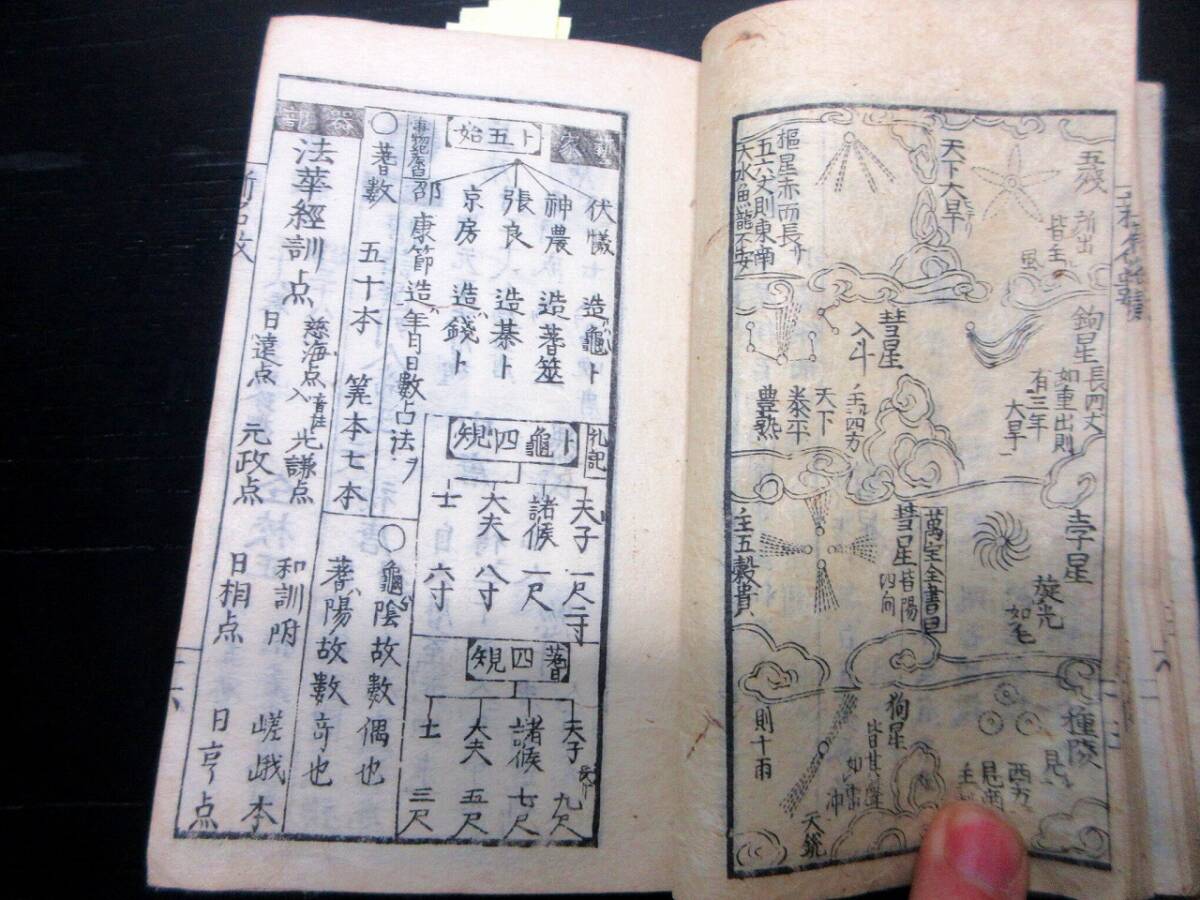 五殘
所出
皆主
風
天下大旱
樞星赤而長サ
五六丈則東南
大水魚龍不安
鉤星長四丈
如重出則
有三年
大旱
彗星
入斗
主四方
天下
泰平
豊熟
孛星
旋光
如毛
萬宝全書曰
彗星皆陽
四向
主五穀貴
種陵
見
西方
狗星
天鋭
則十雨
卜五始
伏犧 造龜卜
神農 造蓍筮
張良 造棊卜
京房 造錢卜
邵康節造年月日數占法ヲ
事物紀原曰
礼記
卜龜四規
天子 一尺二寸
諸候 一尺
大夫 八寸
士 六寸
蓍四規
天子 長サ 九尺
諸候 七尺
大夫 五尺
士 三尺
○蓍數 五十本 筭本七本
○龜陰故數偶也
蓍陽故數奇也
器部
法華經訓点
慈海点 光謙点 和訓附 嵯峨本
日遠点 元政点 日相点 日亨点